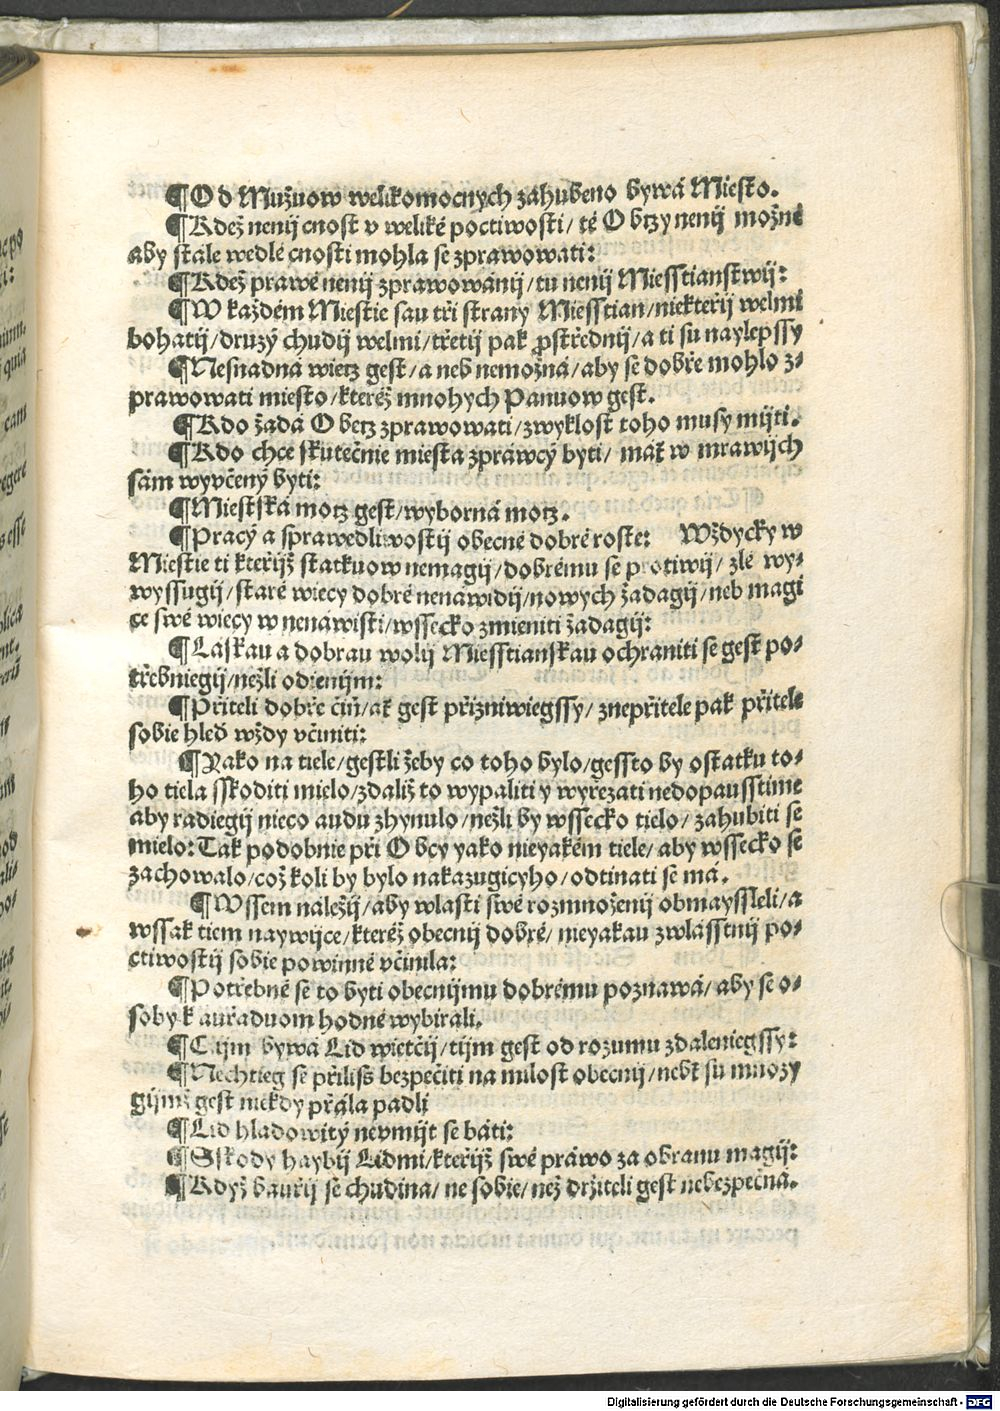 ¶Od Mužuow welikomocnych zahubeno bywá Miesto.
¶Kdež nenij cnost v weliké poctiwosti/ té Obtzy nenij možné
aby stále wedlé cnosti mohla se zprawowati:
¶Kdež prawé nenij zprawowánij/tu nenij Miesstianstwij:
¶W každém Miestie sau tři strany Miesstian/niekteřij welmi
bohatij/druzý chudij welmi/třetij pak ꝓstřednij/a ti su naylepssy
¶Nesnadná wietz gest/a neb nemožná/aby se dobře mohlo z⸗
prawowati miesto/kteréž mnohych Panuow gest.
¶Kdo žadá Obetz zprawowati/zwyklost toho musy mijti.
¶Kdo chce skutečnie miesta zpráwcý byti/ máť w mrawijch
sám wyvčený byti:
¶Miestská motz gest/wyborná motz.
¶Pracý a sprawedliwostij obecné dobré roste: Wždycky w
Miestie ti kteřijž statkuow nemagij/dobrému se protiwij/ zlé wy⸗
wyssugij/staré wiecy dobré nenáwidij/nowych žadagij/neb magi
ce swé wiecy w nenáwisti/wssecko zmieniti žadagij:
¶Laskau a dobrau wolij Miesstianskau ochraniti se gest po⸗
třebniegij/nežli odienijm:
¶Přiteli dobře čiň/ať gest přizniwiegssy/ znepřitele pak přitele
sobie hleď wždy včiniti:
¶Yako na tiele/gestli žeby co toho bylo/gessto by ostatku to⸗
ho tiela sskoditi mielo/zdaliž to wypaliti y wyřezati nedopausstime
aby radiegij nieco audu zhynulo/nežli by wssecko tielo/ zahubiti se
mielo: Tak podobnie při Obcy yako nieyakém tiele/ aby wssecko se
zachowalo/což koli by bylo nakazugicyho/odtinati se má.
¶Wssem náležij/aby wlasti swé rozmnoženij obmayssleli/a
wssak tiem naywijce/kteréž obecnij dobré/ nieyakau zwlásstnij po⸗
ctiwostij sobie powinné včinila:
¶Potřebné se to byti obecnijmu dobrému poznawá/ aby se o⸗
soby k auřaduom hodné wybirali.
¶Cijm bywá Lid wietčij/tijm gest od rozumu zdaleniegssy:
¶Nechtieg se přiliss bezpečiti na milost obecnij/nebť su mnozy
gijmž gest niekdy přála padli
¶Lid hladowitý nevmijt se báti:
¶Sskody haybij Lidmi/kteřijž swé práwo za obranu magij:
¶Když bauřij se chudina/ ne sobie/ než držiteli gest nebezpečná.
Digitalisierung gefördert durch die Deutsche Forschungsgemeinschaft - DFG